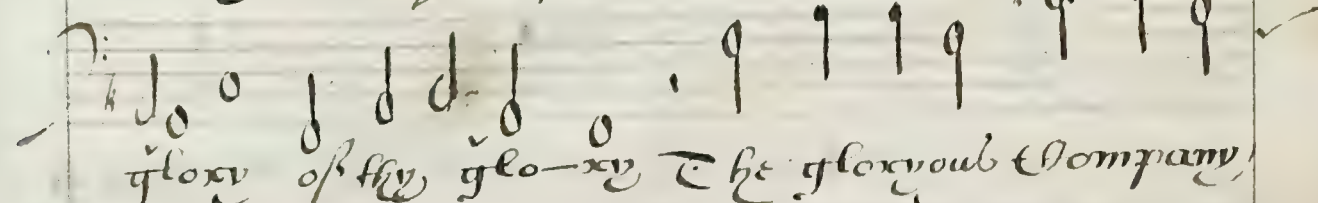 glory of thy glo-ry The gloryous Company